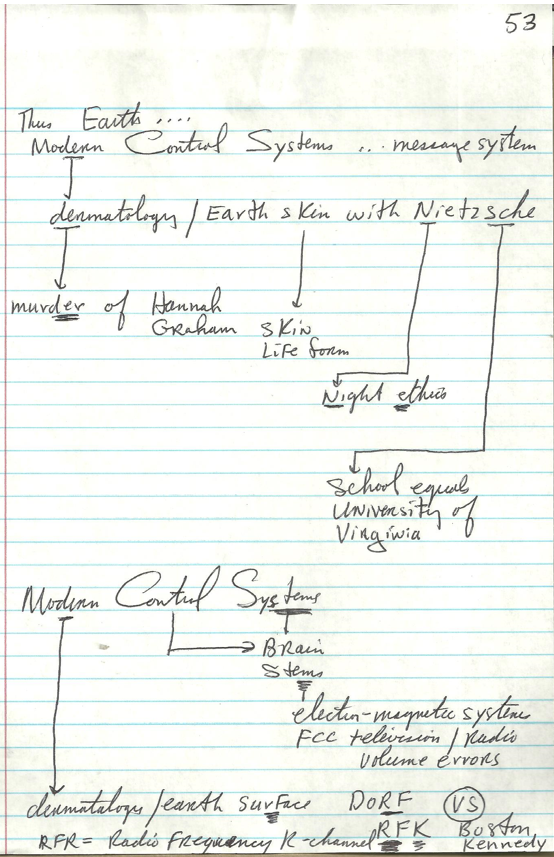 53
Thus Earth ....
Modern Control Systems ... message system
dermatology / Earth skin with Nietzsche
murder of Hannah
Graham
skin
Life form
Night ethics
School equals
University of
Virginia
Modern Control Systems
Brain
Stems
electro-magnetic systems
FCC television / Radio
volume errors
dermatology/earth surface DORF VS Boston
RFR = Radio Frequency R-channel RFK Kennedy